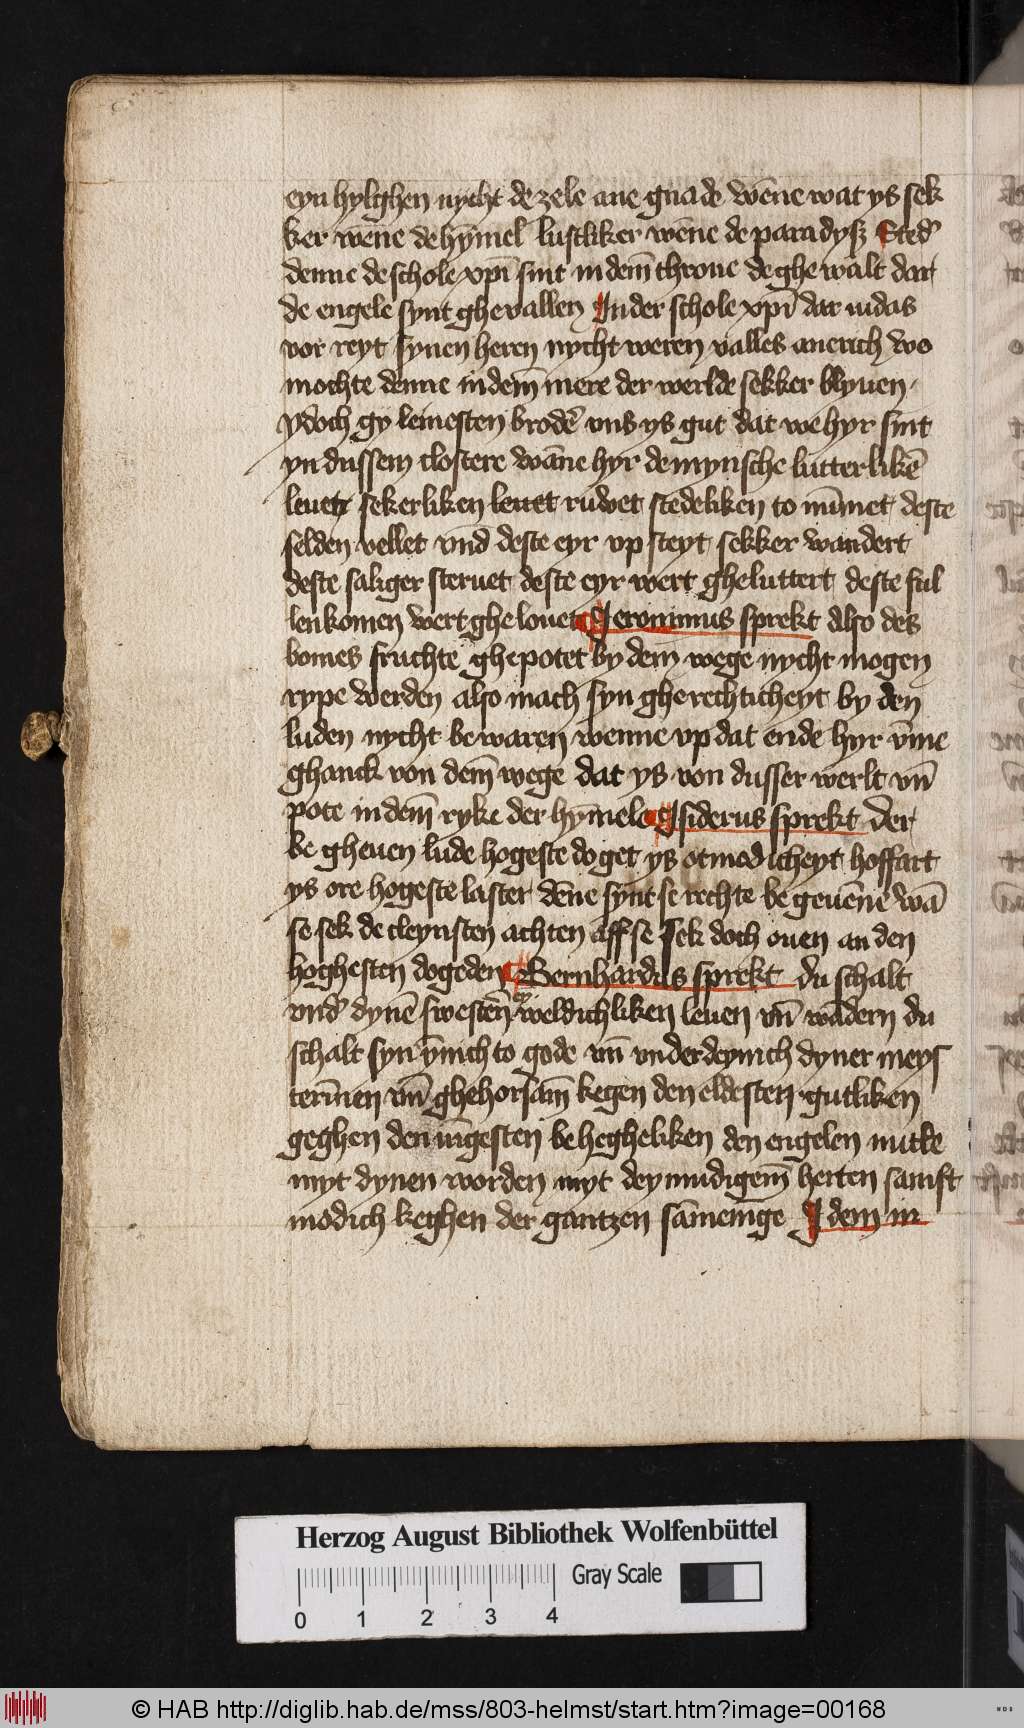 eyn hylghen nycht de zele ane gnade wēne wat ys sek
ker wēne de hȳmel lustliker wēne de paradysz Sted̕
denne de schole xp̄i sint in dem̄ throne de ghewalt dar
de engele synt ghevallen In der schole xp̄i dar iudas
vor reyt synen heren nycht weren valles anerich wo
mochte denne in dem̄ mere der werlde sekker blyuen
ydoch gy leuesten brod̕e vns ys gut dat we hyr sint
yn dussem clostere wāne hyr de mynsche lutterlikē
leuet sekerliken leuet ruwet stedeliken to nūmet deste
selden vellet vnd̄ deste eyr vp steyt sekker wandert
deste saliger steruet deste eyr wert gheluttert deste ful
lenkomen wert ghelouet Jeronimus sprekt Also des
bomes fruchte ghepotet by dem wege nycht mogen
rype werden also mach syn gherechticheyt by den
luden nycht bewaren wenne vp dat ende hyr vm̄e
ghanck von dem̄ wege dat ys von dusser werlt vn̄
pote in dem̄ ryke der hȳmele Isiderus sprekt der
be gheuen lude hogeste doget ys otmodicheyt hoffart
ys ore hogeste laster dēne synt se rechte be geuēne wā
se sek de cleynsten achten aff se sek doch ouen an den
hoghesten dogeden Bernhardus sprekt du schalt
vnd̕ dynē swestēn eyweldichliken leuen vn̄ wādern du
schalt syn ȳnich to gode vn̄ vnderdeynich dyner meys
terīnen vn̄ ghehorsam̄ kegen den eldesten gutliken
geghen den iūgesten behegheliken den engelen nutte
myt dynen worden myt deymudigem̄ herten samft
modich keghen der gantzen sāmeīnge Idem in
Herzog August Bibliothek Wolfenbüttel
Gray Scale
0 1 2 3 4
© HAB http://diglib.hab.de/mss/803-helmst/start.htm?image=00168